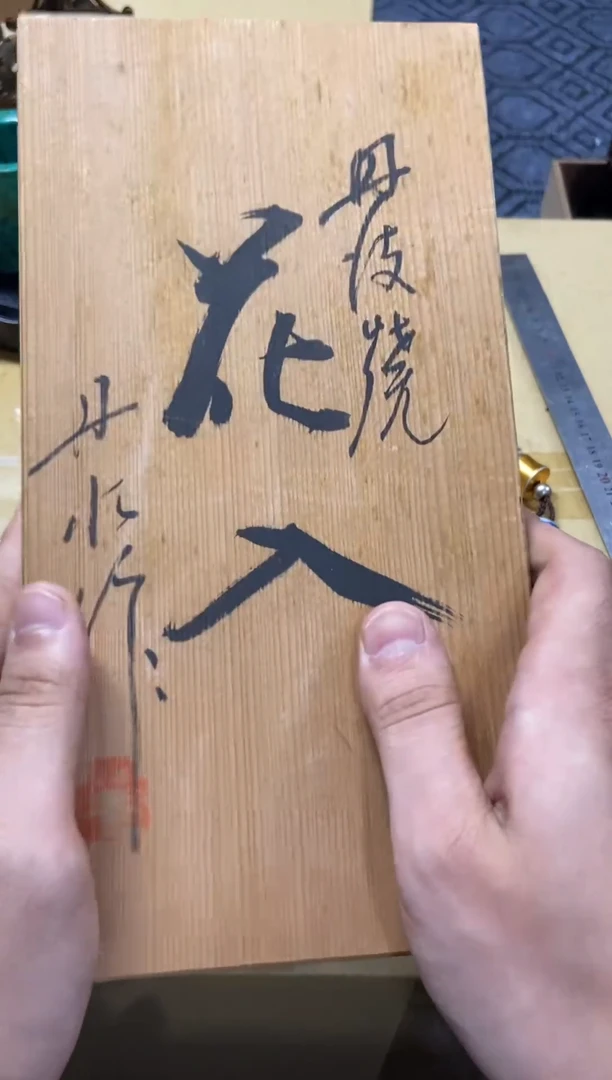 丹波焼
花入
丹水作